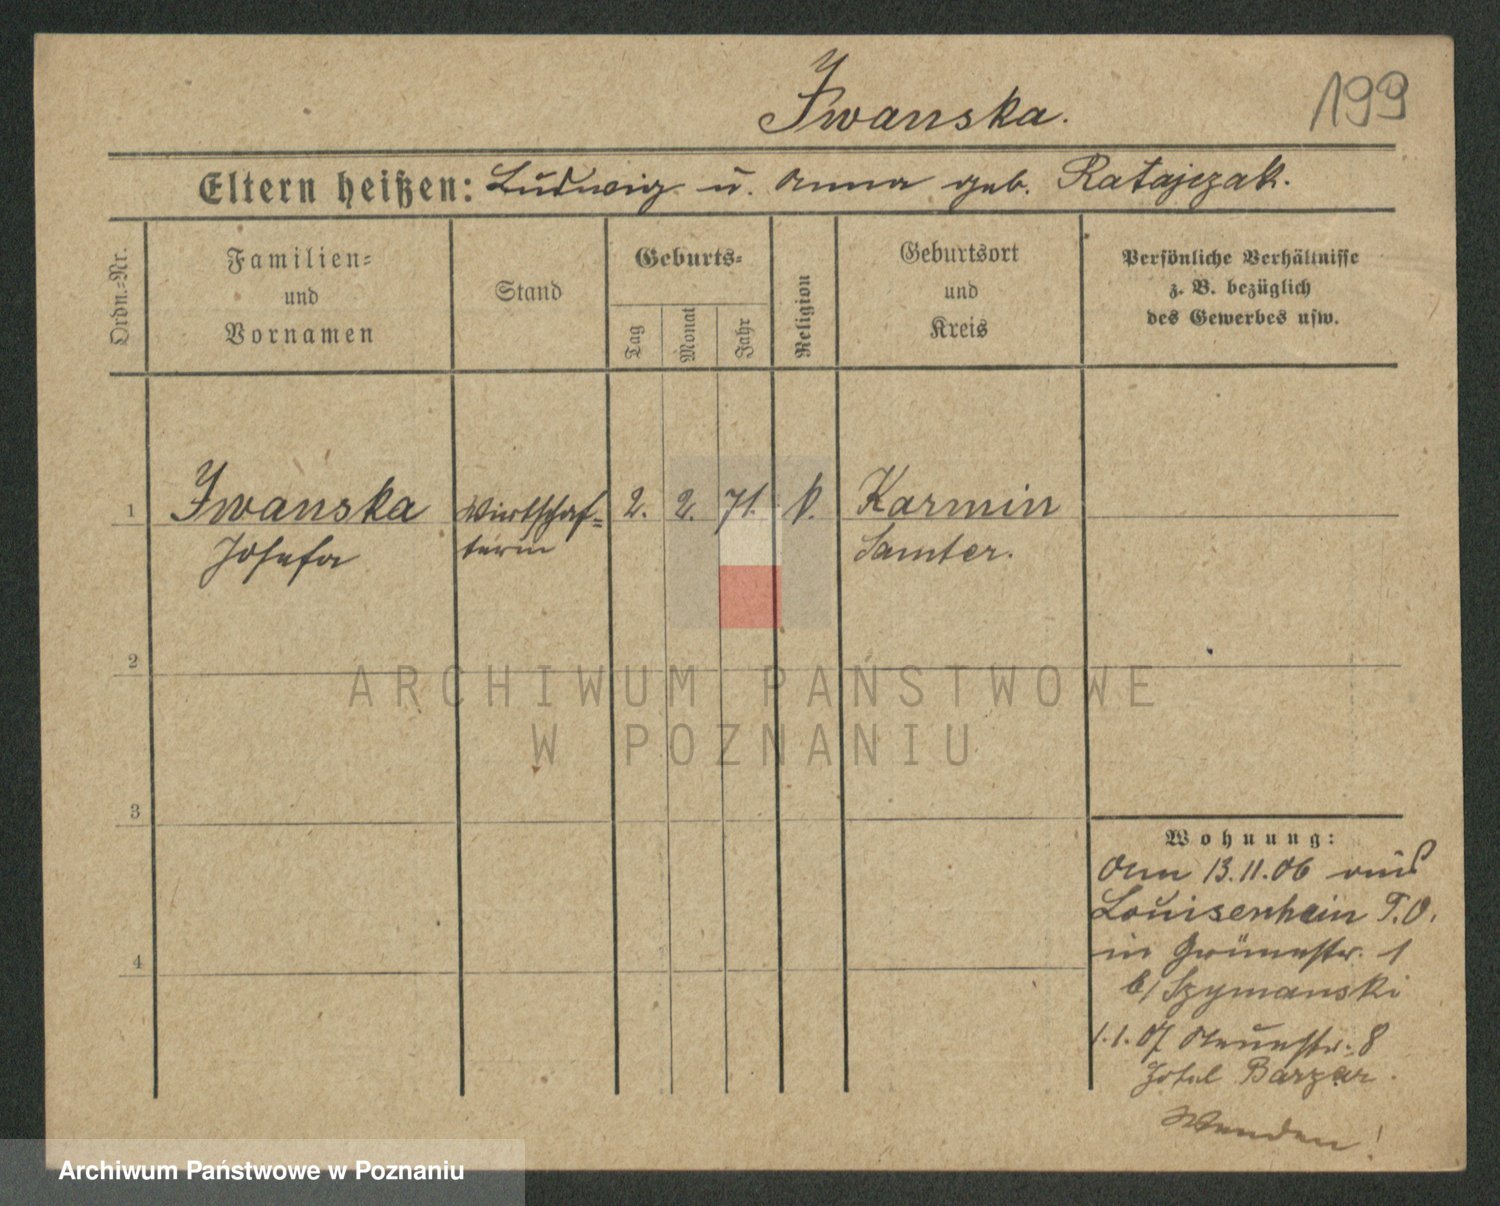 Iwanska.
199
Eltern heißen: Ludwig u. Anna geb. Ratajczak.
Ordn.-Nr.
Familien-
und
Vornamen
Stand
Geburts-
Tag
Monat
Jahr
Religion
Geburtsort
und
Kreis
Persönliche Verhältnisse
z. B. bezüglich
des Gewerbes usw.
1
Iwanska
Josefa
Wirtschaf-
terin
2.
2.
71.
k.
Karmin
Samter.
2
3
4
Wohnung:
Am 13.11.06 aus
Louisenhain P.O.
in Grünestr. 1
b/ Szymanski
1.1.07 Neuestr. 8
Hotel Bazar.
Wenden!
ARCHIWUM PAŃSTWOWE
W POZNANIU
Archiwum Państwowe w Poznaniu